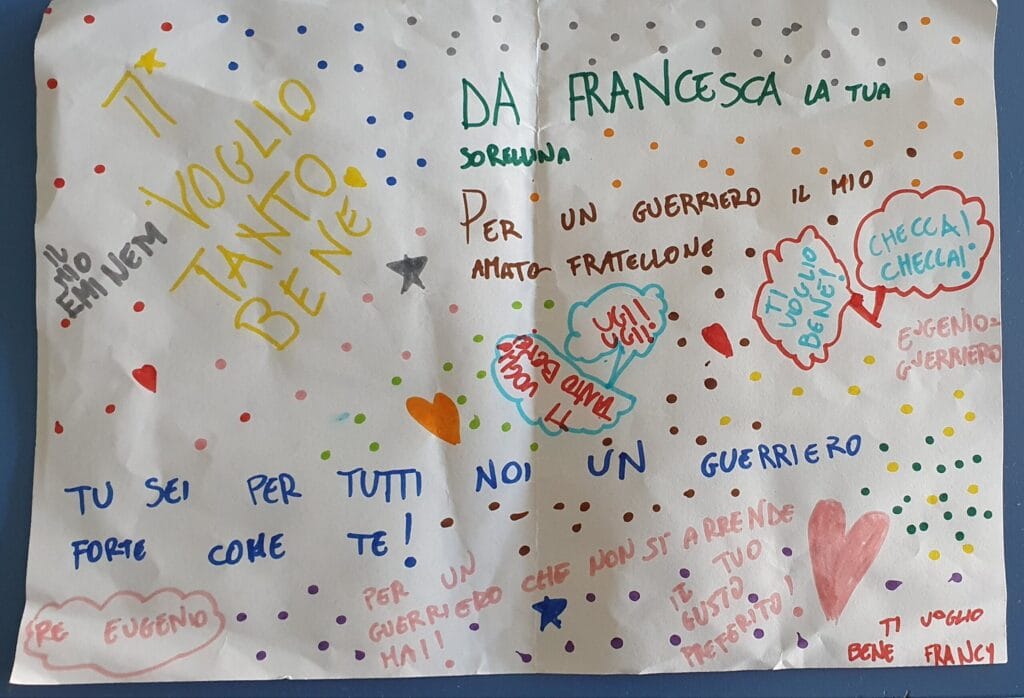 TI
VOGLIO
TANTO
BENE
IL
MIO
EMINEM
DA FRANCESCA LA TUA
SORELLINA
PER UN GUERRIERO IL MIO
AMATO FRATELLONE
CHECCA!
CHECCA!
TI
VOGLIO
BENE!
EUGENIO=
GUERRIERO
TI VOGLIO
TANTO BENE
TU SEI PER TUTTI NOI UN GUERRIERO
FORTE COME TE!
PER UN
GUERRIERO CHE NON SI ARRENDE
MAI!
IL TUO
GUSTO
PREFERITO!
RE EUGENIO
TI VOGLIO
BENE FRANCY